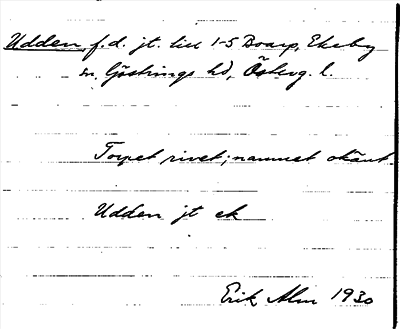 Udden, f.d. jt. till 1-5 Doarp, Ekeby
sn, Göstrings hd, Österg. l.
Torpet rivet; namnet okänt.
Udden jt ek
Erik Alm 1930